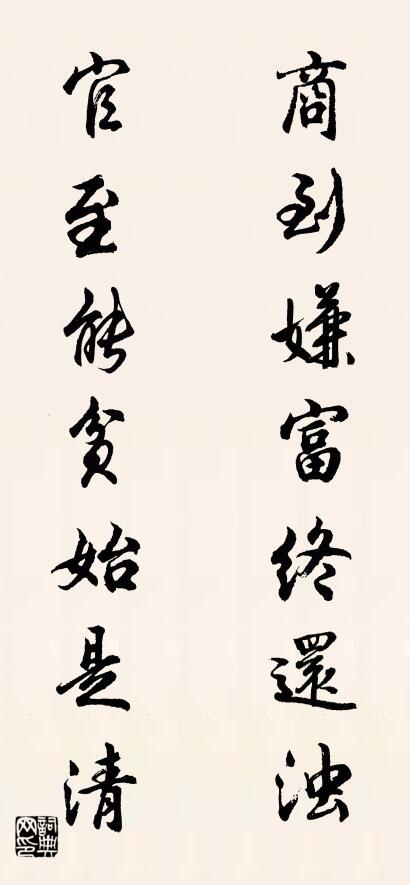 商到嫌富终還浊
官至能貧始是清
詞典
网印